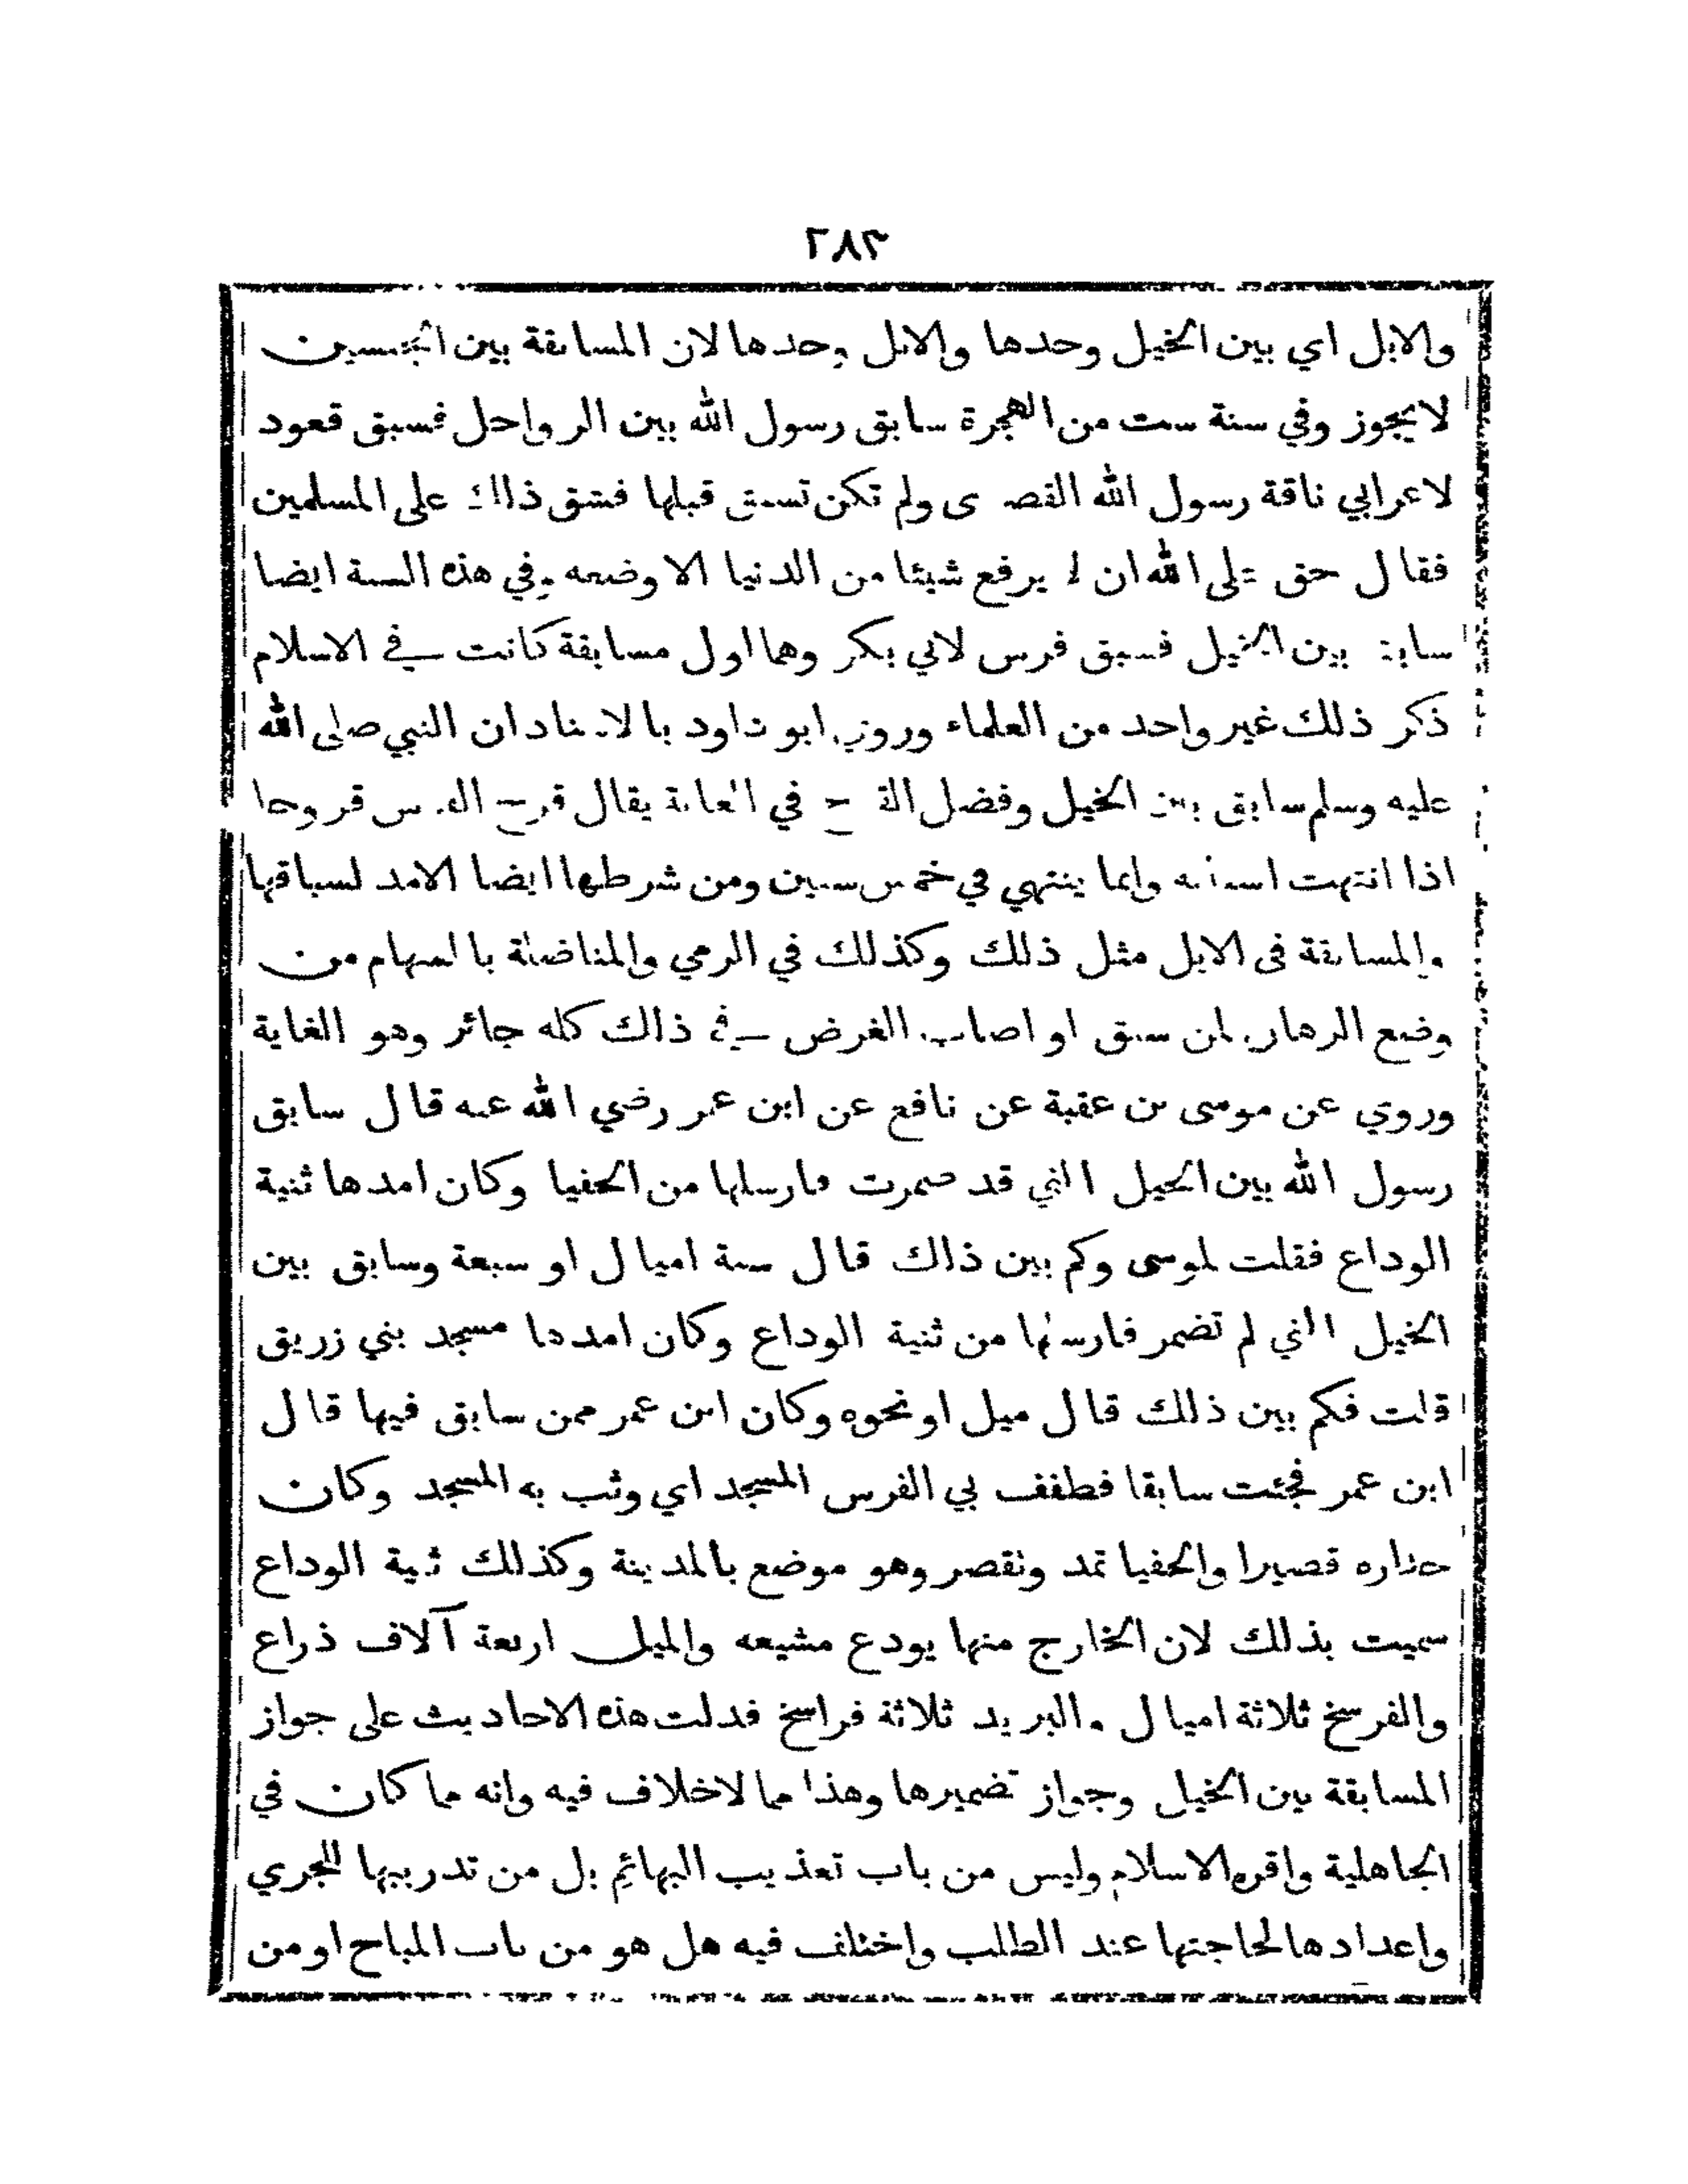 ٢٨٣
والابل اي بين الخيل وحدها والابل وحدها لان المسابقة بين الجنسين
لايجوز وفي سنة ست من الهجرة سابق رسول الله بين الرواحل فسبق قعود
لاعرابي ناقة رسول الله القصوى ولم تكن تسبق قبلها فشق ذلك على المسلمين
فقال حق على الله ان لا يرفع شيئا من الدنيا الا وضعه وفي هذه السنة ايضا
سابق بين الخيل فسبق فرس لابي بكر وهما اول مسابقة كانت في الاسلام
ذكر ذلك غير واحد من العلماء وروى ابو داود بالاسناد ان النبي صلى الله
عليه وسلم سابق بين الخيل وفضل القرح في الغاية يقال قرح الفرس قروحا
اذا انتهت اسنانه وانما ينتهي في خمس سنين ومن شرطها ايضا الامد لسباقها
والمسابقة في الابل مثل ذلك وكذلك في الرمي والمناضلة بالسهام من
وضع الرهان لمن سبق او اصاب الغرض في ذلك كله جائز وهو الغاية
وروي عن موسى بن عقبة عن نافع عن ابن عمر رضي الله عنه قال سابق
رسول الله بين الخيل التي قد ضمرت فارسلها من الحفيا وكان امدها ثنية
الوداع فقلت لموسى وكم بين ذلك قال ستة اميال او سبعة وسابق بين
الخيل التي لم تضمر فارسلها من ثنية الوداع وكان امدها مسجد بني زريق
قلت فكم بين ذلك قال ميل او نحوه وكان ابن عمر ممن سابق فيها قال
ابن عمر فجئت سابقا فطفف بي الفرس المسجد اي وثب به المسجد وكان
جداره قصيرا والحفيا تمد وتقصر وهو موضع بالمدينة وكذلك ثنية الوداع
سميت بذلك لان الخارج منها يودع مشيعه والميل اربعة آلاف ذراع
والفرسخ ثلاثة اميال والبريد ثلاثة فراسخ فدلت هذه الاحاديث على جواز
المسابقة بين الخيل وجواز تضميرها وهذا مما لاخلاف فيه وانه مما كان في
الجاهلية واقره الاسلام وليس من باب تعذيب البهائم بل من تدريبها للجري
واعدادها لحاجتها عند الطلب واختلف فيه هل هو من باب المباح او من